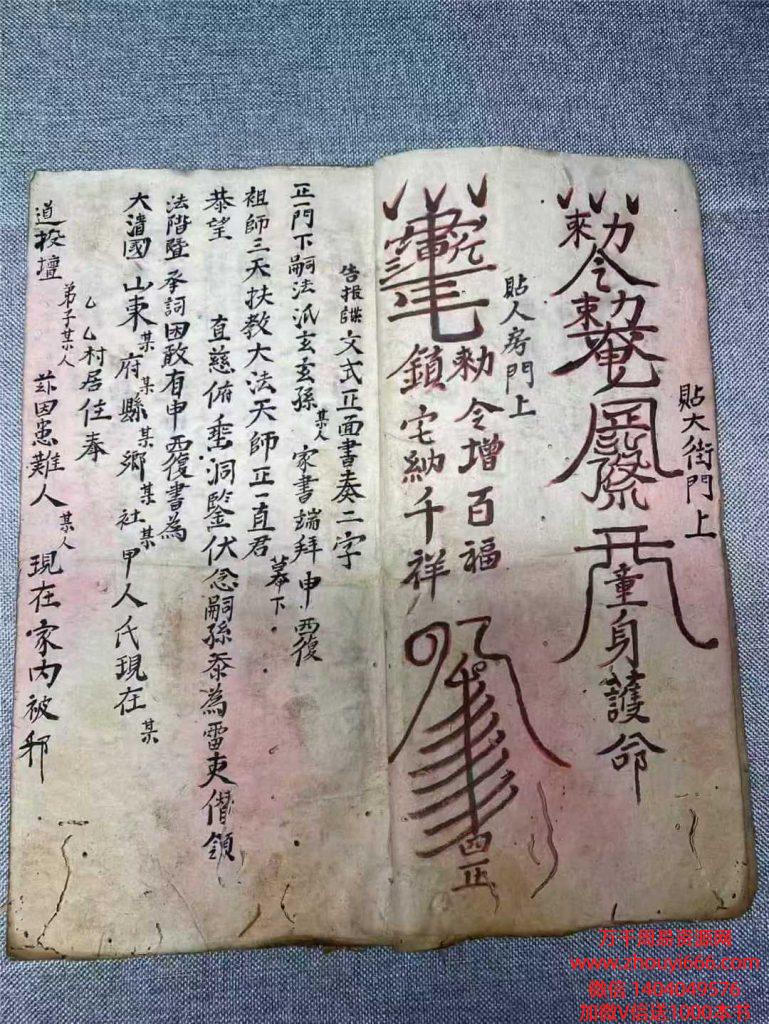 貼大街門上
敕令
童身護命
貼人房門上
敕令增百福
鎮宅納千祥
四正
告报牒文式正面書奏二字
正一門下嗣法派玄玄孫某人家書端拜申西復
祖師三天扶教大法天師正一直君幕下
恭望直慈俯垂洞鑒伏念嗣孫忝為雷吏僭領
法階暨承詞因敢有申西復書為
大清國山東某府某縣某鄉某社某甲人氏現在某
乙乙村居住奉
道投壇弟子某人茲因患難人某人現在家內被邪
万千周易资源网
www.zhouyi666.com
微信 1404049576
加微V信送1000本书